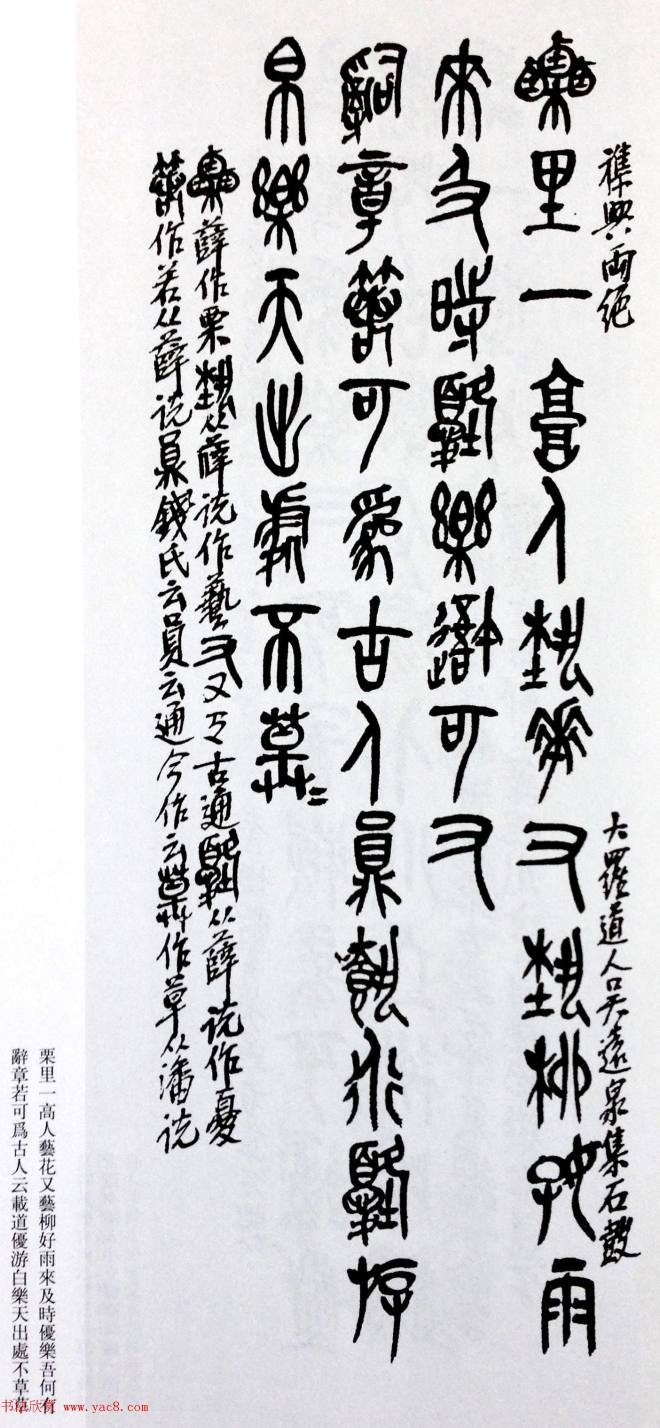 襍興兩絕
大羅道人吳遠泉集石鼓
栗里一高人埶華又埶柳好雨
來及時優樂吾可又
辭章若可爲古人員載道優游
白樂天出處不草=
薛作栗埶从薛說作藝又又与古通 从薛說作憂
作若从薛說員錢氏云員云通今作云 作草从潘說
栗里一高人藝花又藝柳好雨來及時優樂吾何有
辭章若可爲古人云載道優游白樂天出處不草草
书法欣赏 www.yac8.com